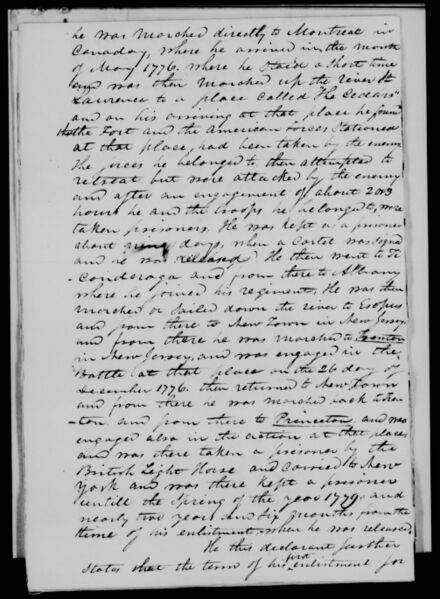 he was marched directly to Montreal in
Canaday, where he arrived in the month
of May 1776. where he staid a short time
and was then marched up the river St
Lawrence to a place called The Cedars"
and on his arriving at that place he found
that the Fort and the American forces stationed
at that place, had been taken by the enemy
The forces he belonged to then attempted to
retreat but were attacked by the enemy
and after an engagement of about 2 or 3
hours he and the troops he belonged to, were
taken prisoners. He was kept as a prisoner
about days, when a Cartel was signed
and he was released. He then went to Ti
-conderoga and from there to Albany
where he joined his regiment, He was then
marched or sailed down the river to Esopus
and from there to New Town in New Jersey,
and from there he was marched to Trenton
in New Jersey, and was engaged in the
Battle at that place on the 26 day of
December 1776. then returned to New Town
and from there he was marched back to Tren-
-ton, and from there to Princeton and was
engaged also in the action at that places
and was there taken a prisoner by the
British Light Horse and carried to New
York and was there kept a prisoner
untill the Spring of the year 1779, and
nearly two years and six months from the
theme of his enlistment, when he was released
He this declarant further
States that the term of his first enlistment for